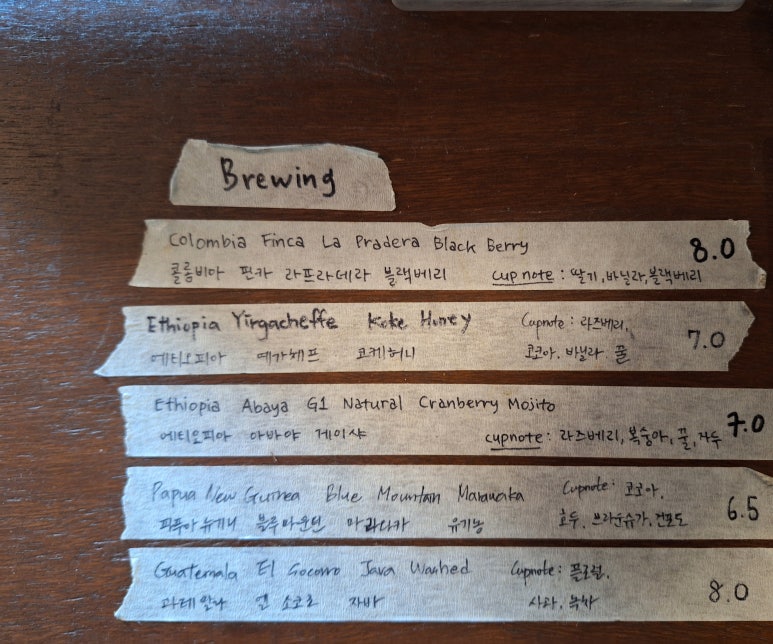 Brewing
Colombia Finca La Pradera Black Berry 8.0
콜롬비아 핀카 라프라데라 블랙베리 cup note : 딸기, 바닐라, 블랙베리
Ethiopia Yirgacheffe Koke Honey Cupnote : 라즈베리, 7.0
에티오피아 예가체프 코케허니 코코아, 바닐라, 꿀
Ethiopia Abaya G1 Natural Cranberry Mojito 7.0
에티오피아 아바야 게이샤 cupnote : 라즈베리, 복숭아, 꿀, 자두
Papua New Guinea Blue Mountain Marawaka Cupnote : 코코아, 6.5
파푸아뉴기니 블루마운틴 마라와카 유기농 호두, 브라운슈가, 건포도
Guatemala El Socorro Java Washed Cupnote : 플로럴, 8.0
과테말라 엘 소코로 자바 사과, 녹차